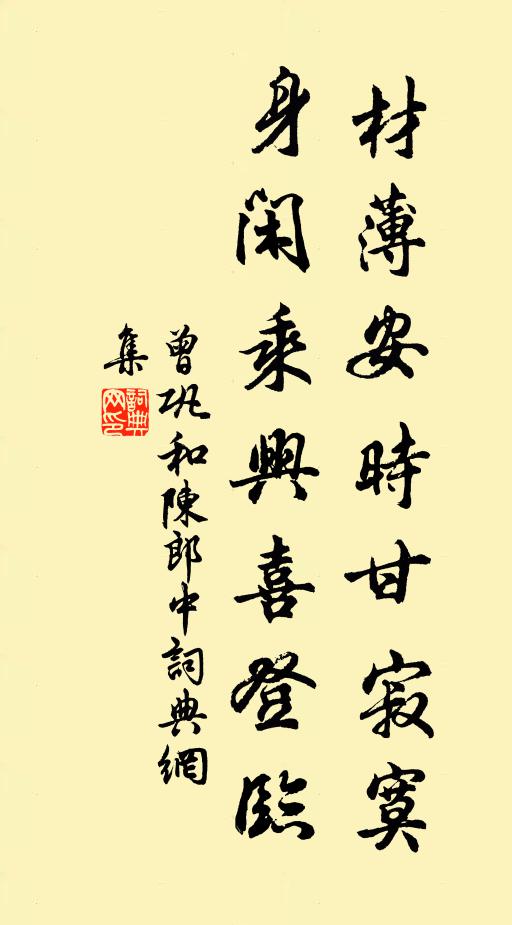 材薄安時甘寂寞
身閑乘興喜登臨
曾巩和陳郎中詞典網
集
詞典
网印